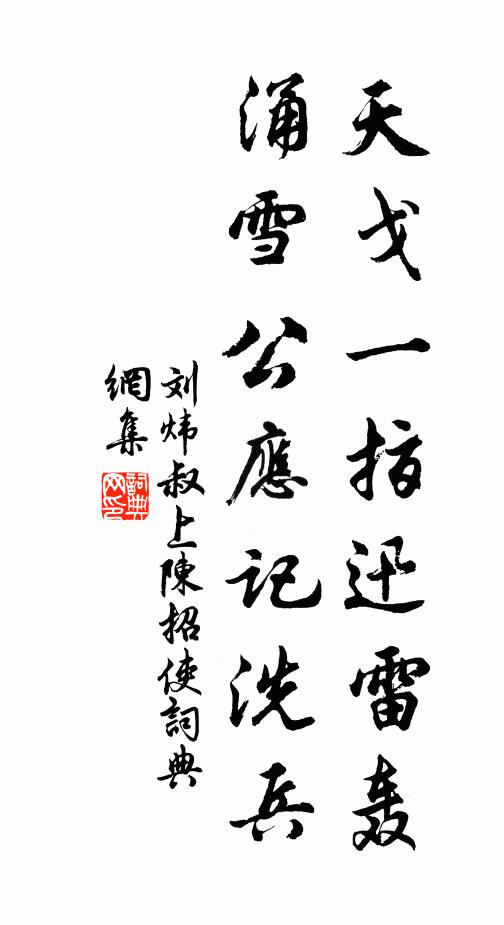 天戈一指迅雷轰
涌雪公應记洗兵
刘炜叔上陳招使詞典
網集
詞典
网印